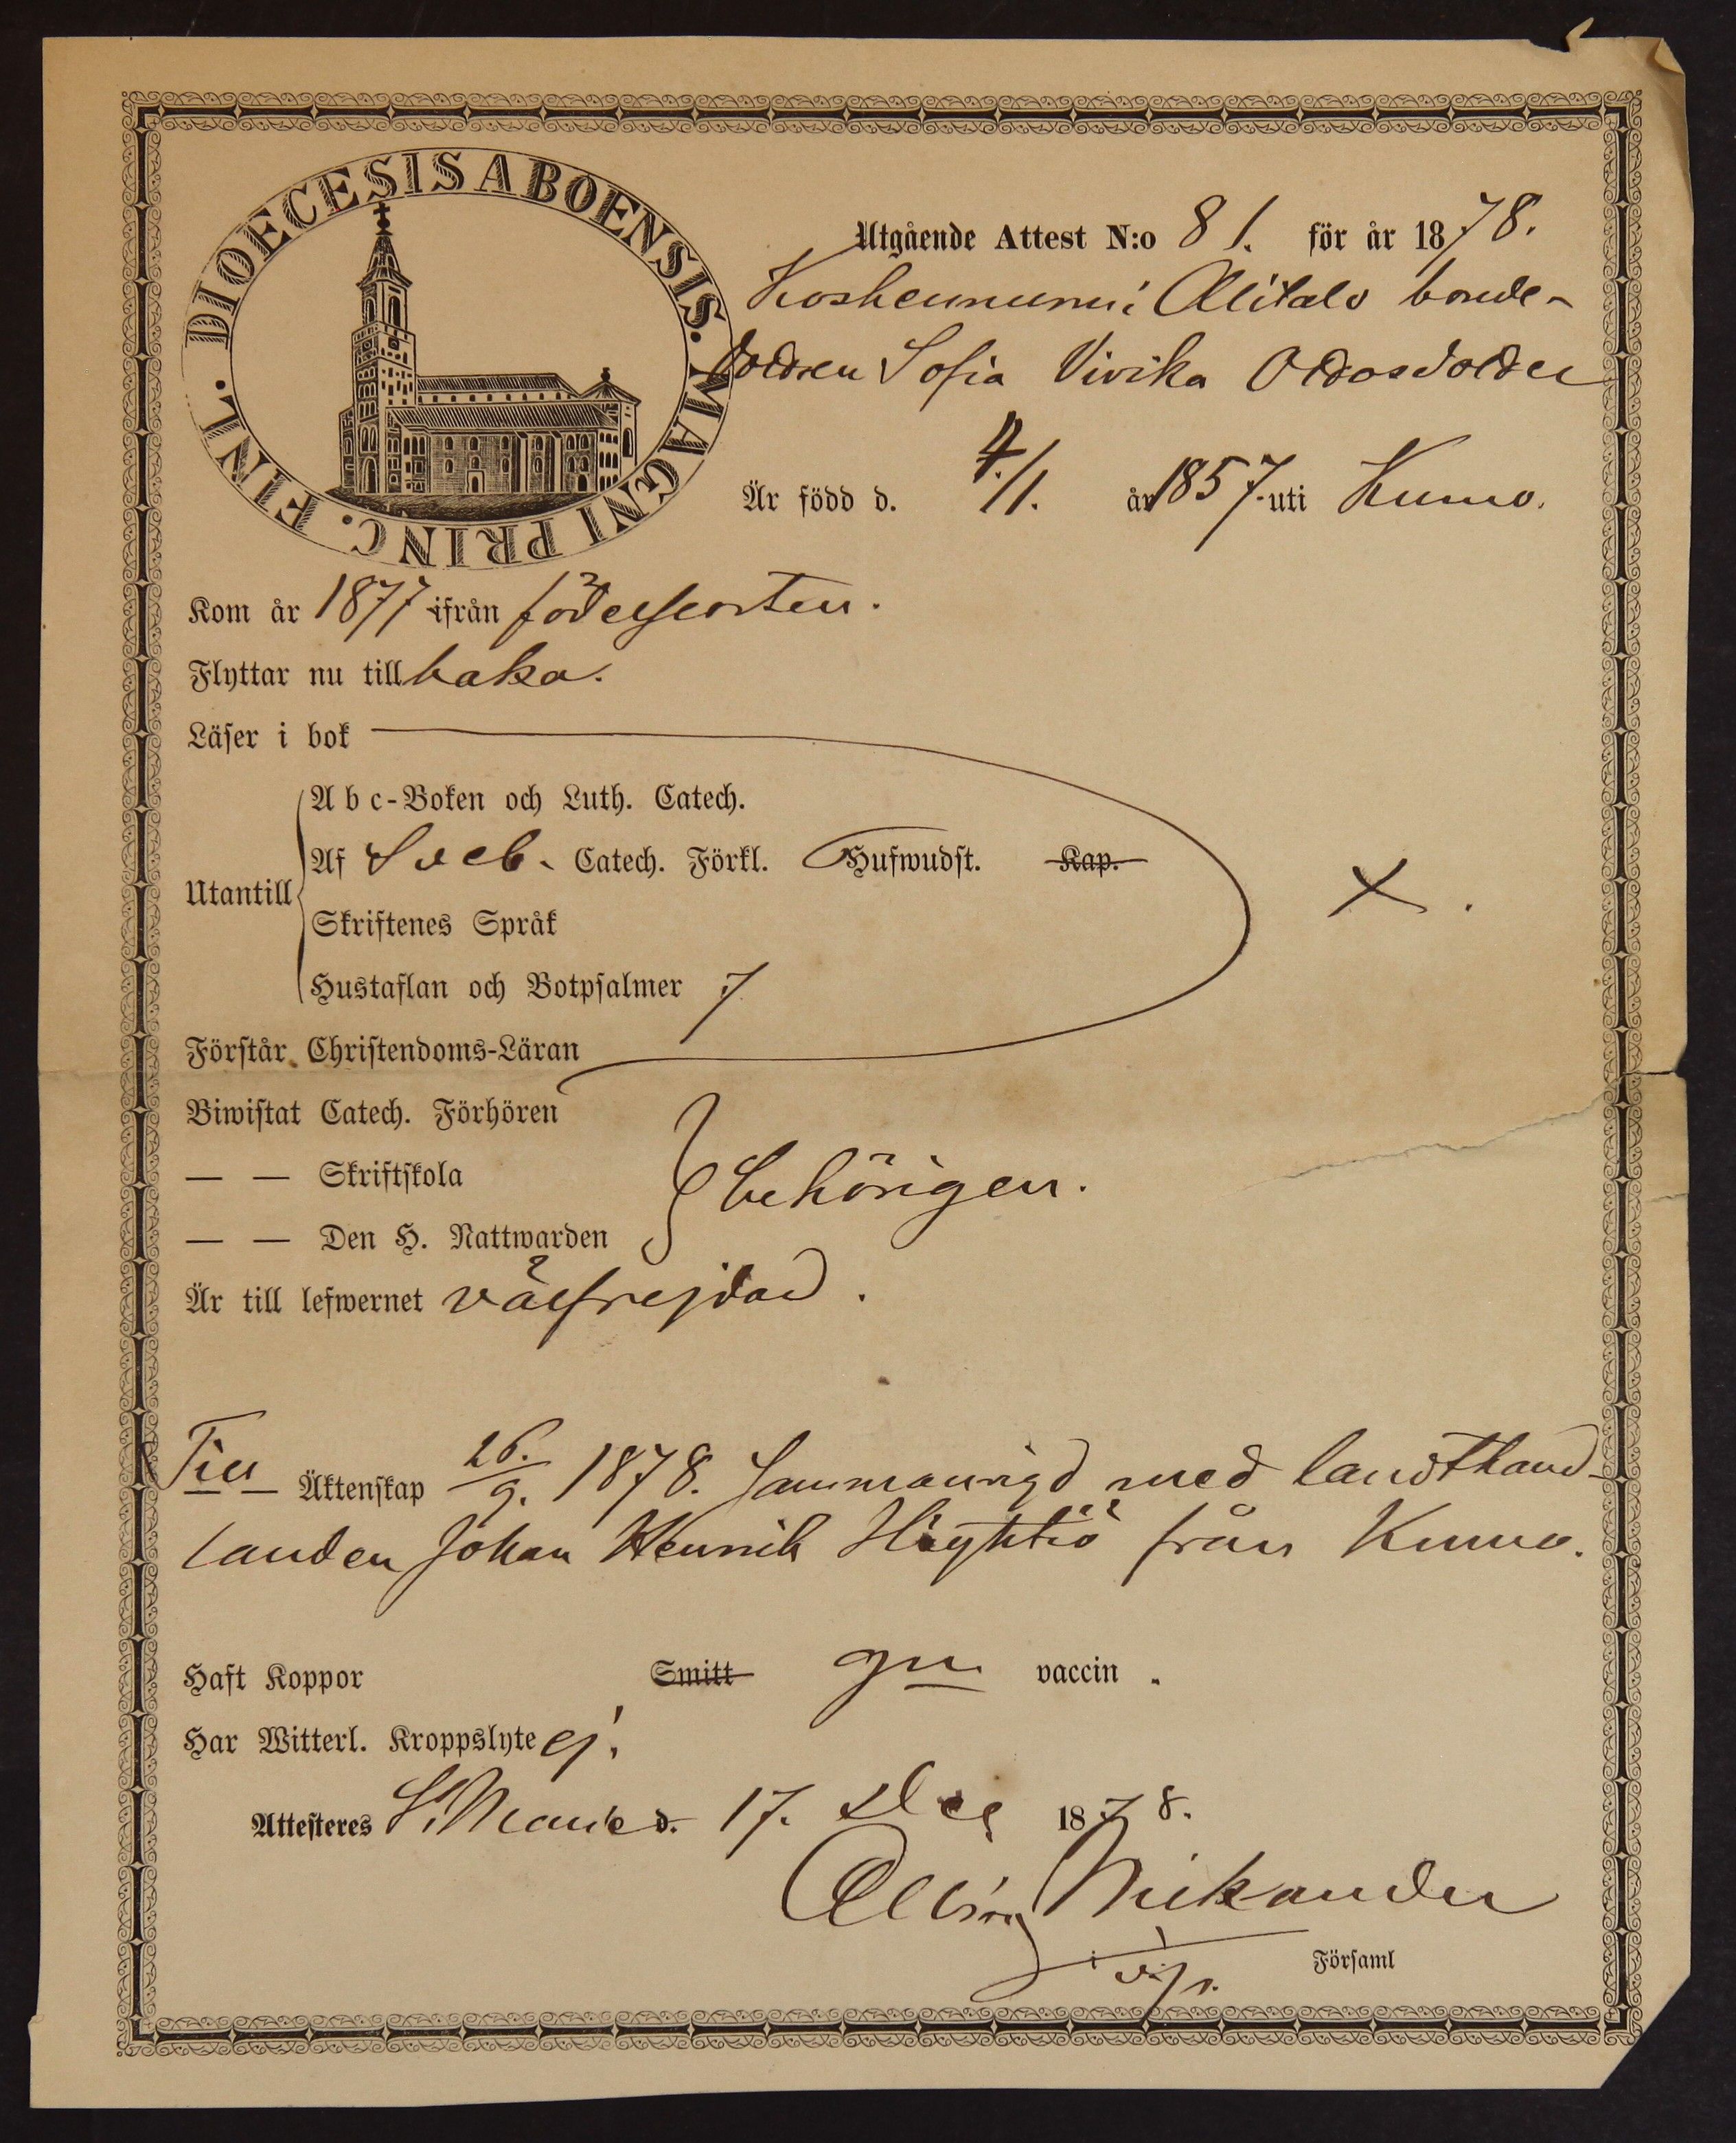 DIOECESIS ABOENSIS. MAGNI PRINC. FINL.
Utgående Attest N:o 81. för år 1878.
Koskennurmi Alitalo bonde-
dottren Sofia Vivika Ottosdotter
Är född d. 4./1. år 1857 uti Kumo.
Kom år 1877 ifrån födelseorten.
Flyttar nu till baka.
Läser i bok
Abc-Boken och Luth. Catech.
Af Sveb. Catech. Förkl. Hufwudst. Kap.
Utantill
X.
Skriftenes Språk
Hustaflan och Botpsalmer 7
Förstår Christendoms-Läran
Biwistat Catech. Förhören
— — Skriftskola
behörigen.
— — Den H. Nattwarden
Är till lefwernet välfrejdad.
Till Äktenskap 26./9. 1878. Sammanvigd med landthand-
landen Johan Henrik från Kumo.
Haft Koppor Smitt gn vaccin.
Har Witterl. Kroppslyte ej.
Attesteres S:t Marie d. 17. Dec 1878.
Albin Mikander
v. p. Församl